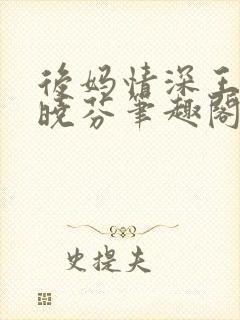 後妈情深王
晓芬笔趣阁
史提夫